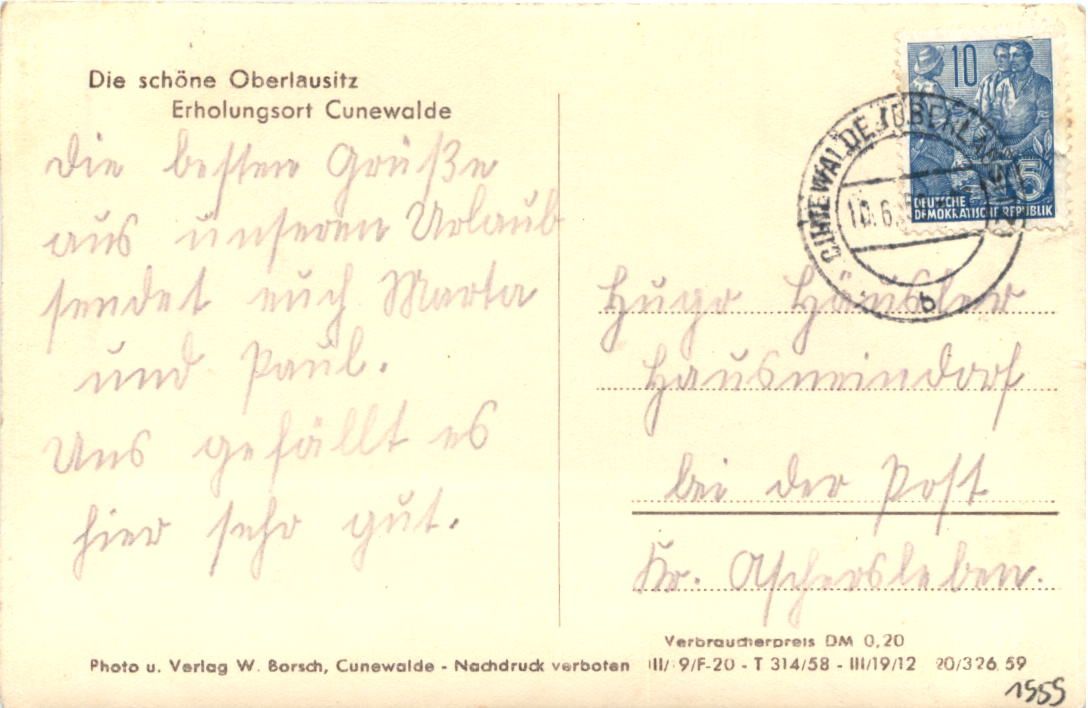 Die schöne Oberlausitz
Erholungsort Cunewalde
Die besten Grüße
aus unseren Urlaub
sendet euch Marta
und Paul.
Uns gefällt es
hier sehr gut.
10
5
DEUTSCHE
DEMOKRATISCHE REPUBLIK
CUNEWALDE (OBERLAUSITZ)
10.6.
b
Hugo Hänsler
Hausneindorf
bei der Post
Kr. Aschersleben.
Verbraucherpreis DM 0,20
Photo u. Verlag W. Borsch, Cunewalde - Nachdruck verboten III/9/F-20 - T 314/58 - III/19/12 20/326 59
1959